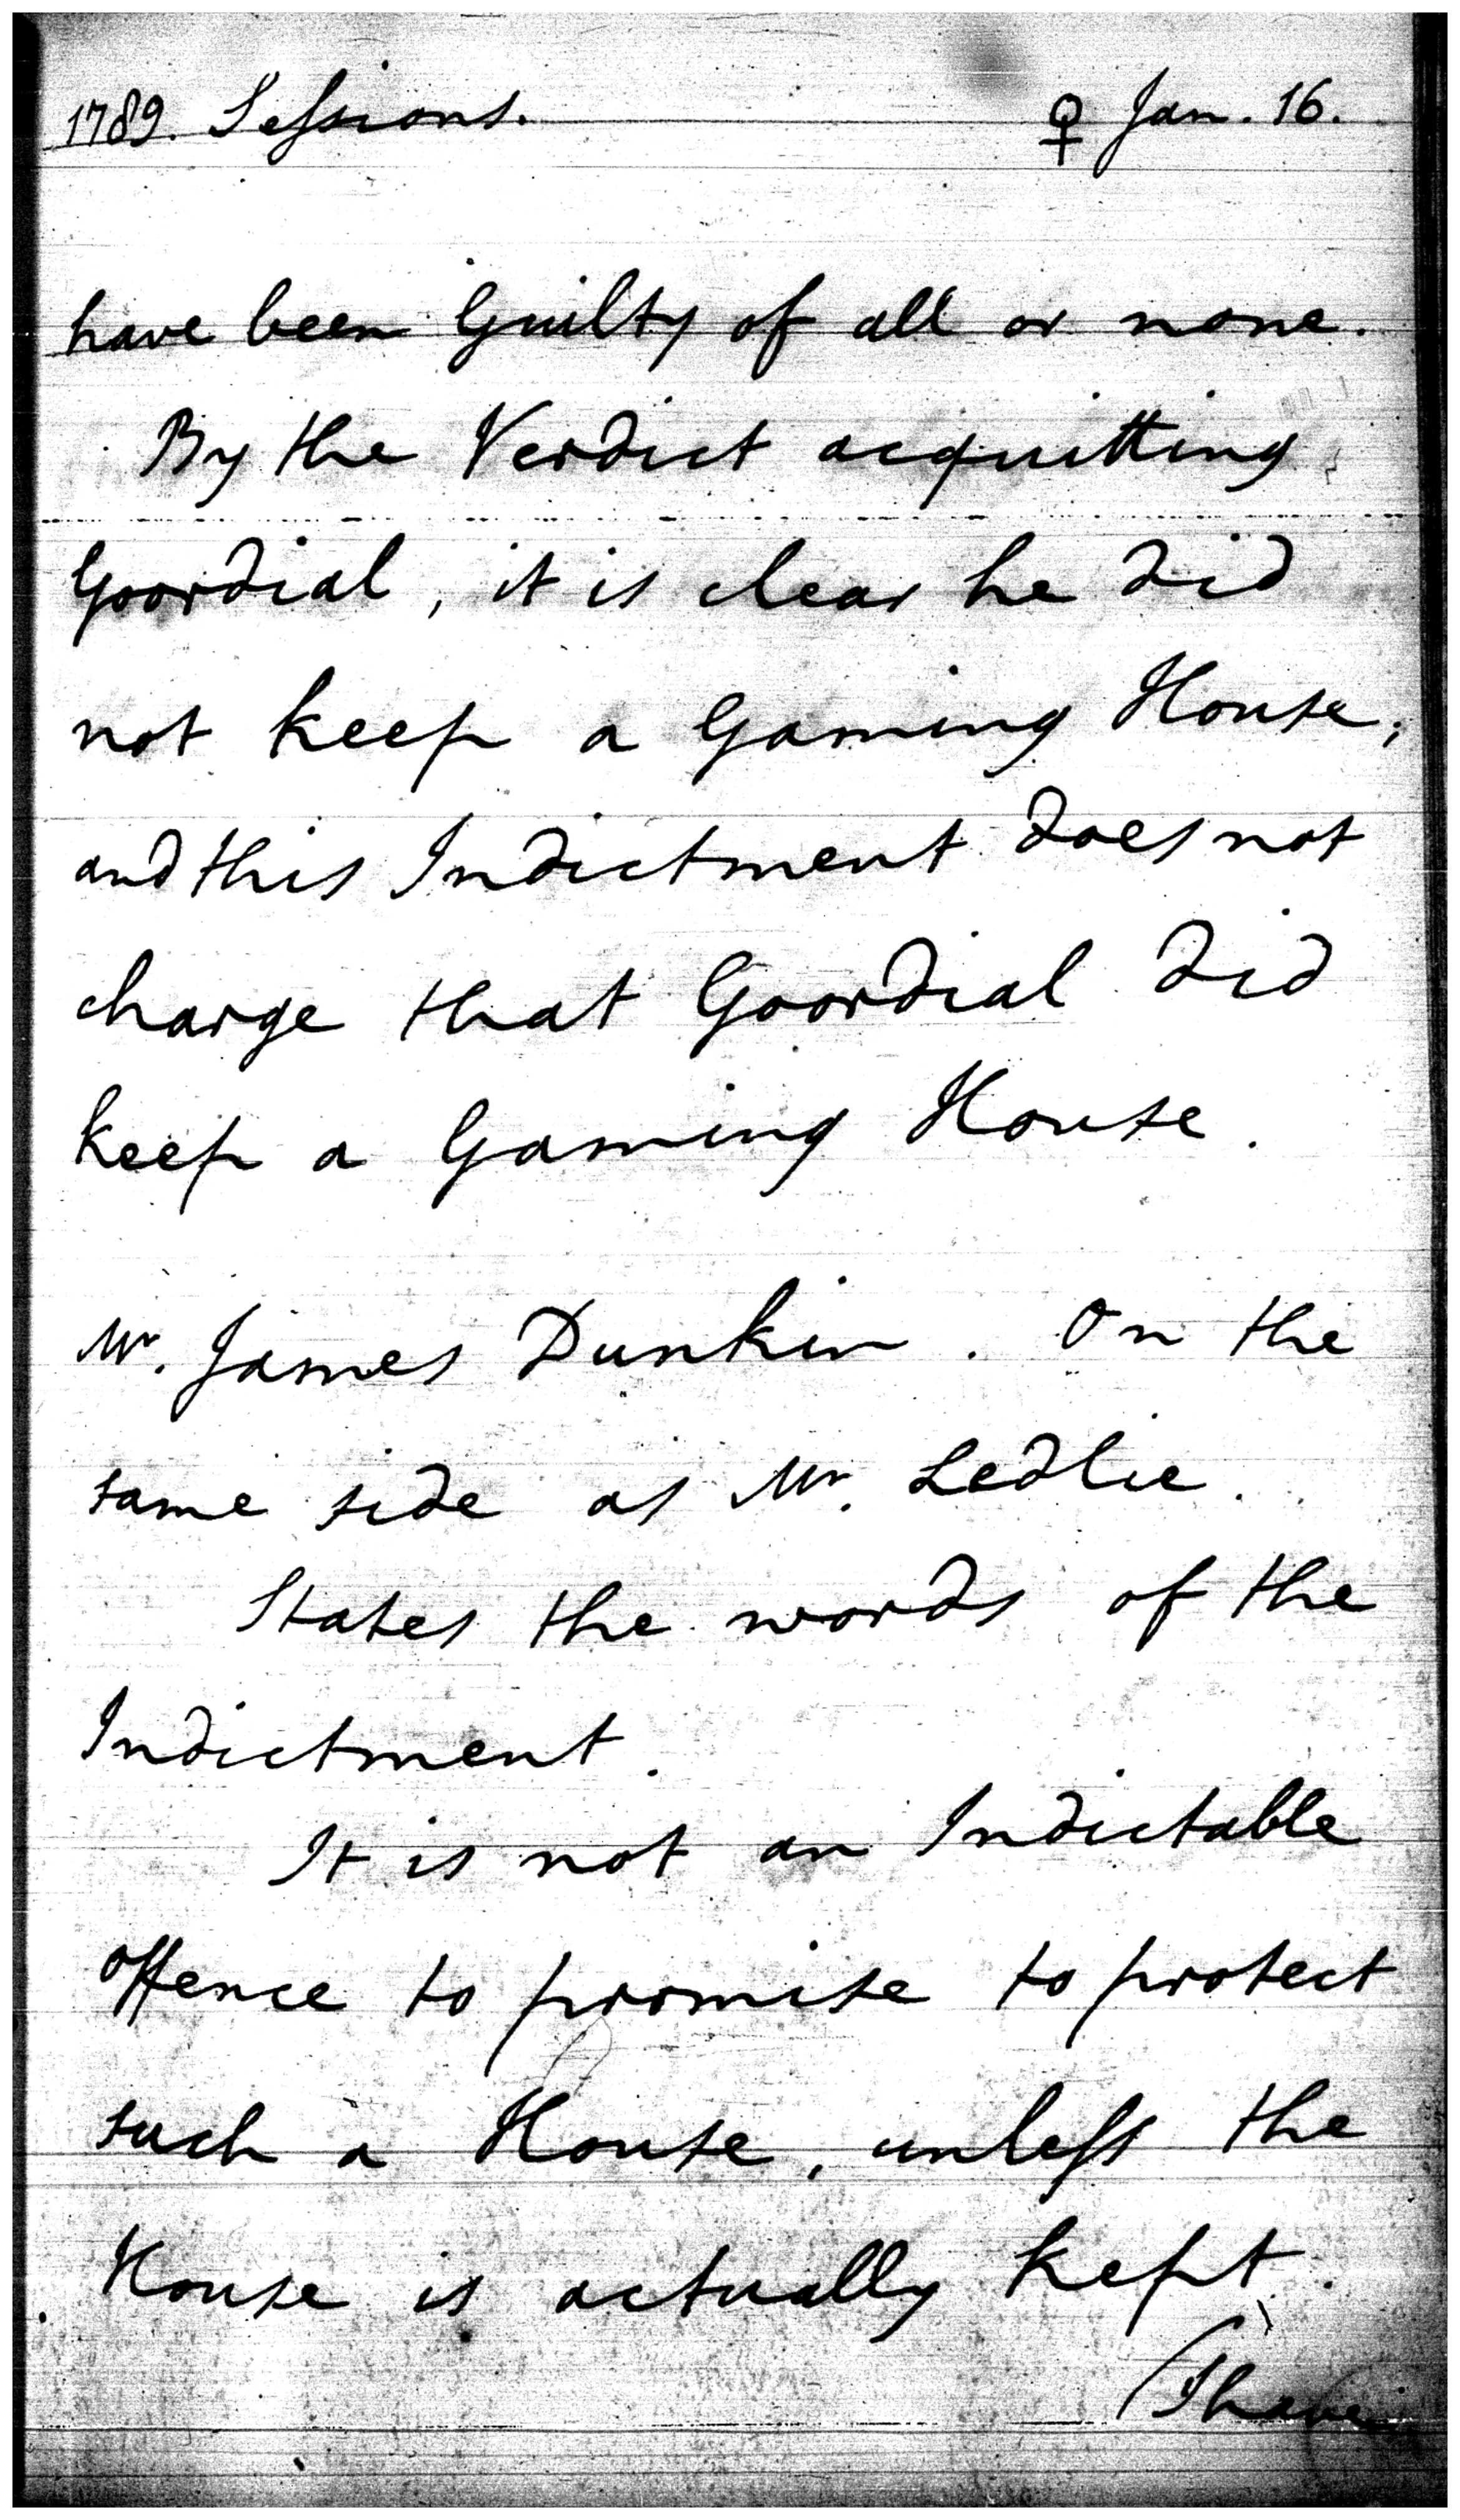 1789. Sessions. ♀ Jan. 16.
have been Guilty of all or none.
By the Verdict acquitting
Goordial, it is clear he did
not keep a Gaming House;
and this Indictment does not
charge that Goordial did
keep a Gaming House.
Mr. James Dunkin. On the
same side as Mr. Ledlie.
States the words of the
Indictment.
It is not an Indictable
offence to promise to protect
such a House, unless the
House is actually kept.